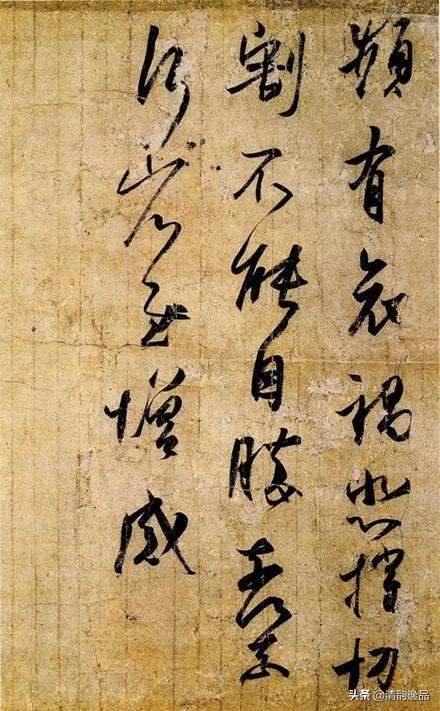 頻有哀禍悲摧切
割不能自勝奈何奈
何省慰增感
头条 @清韵逸品